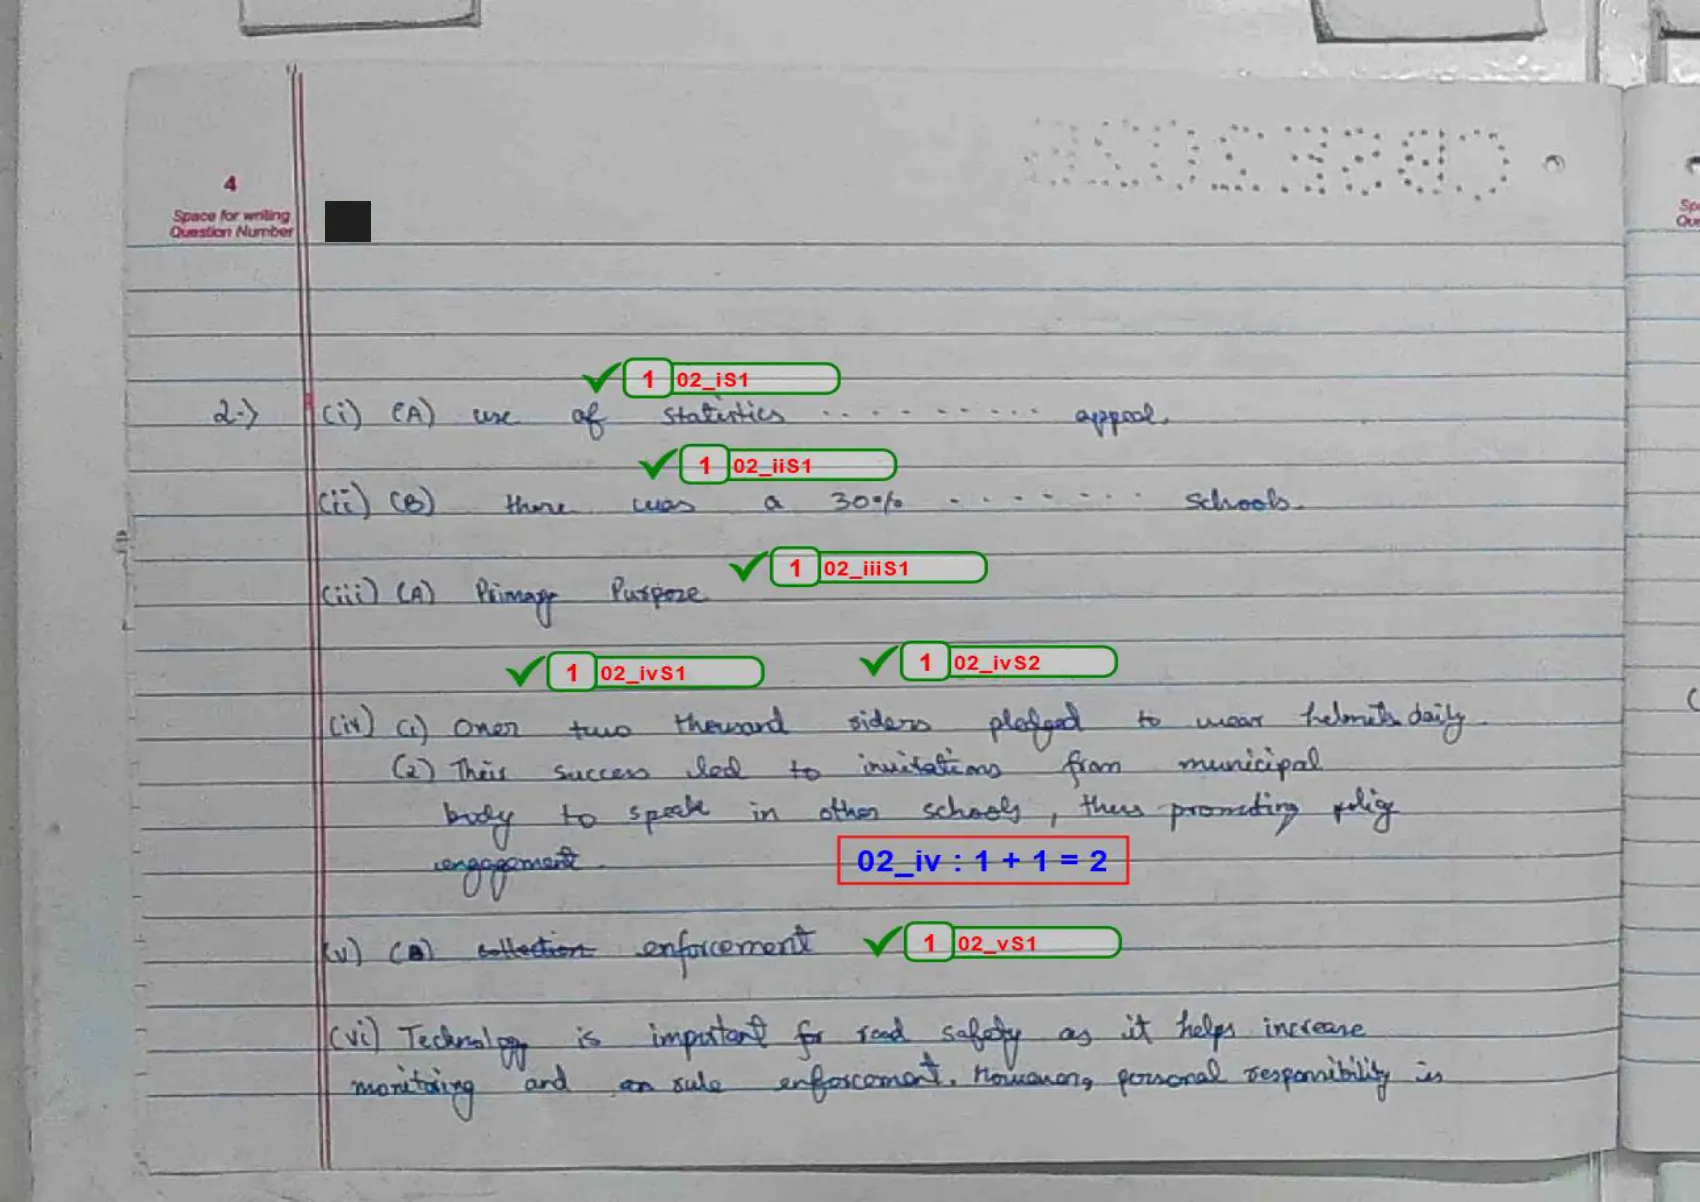 CBSE2026
4
Space for writing
Question Number
✓ 1 02_iS1
2→) (i) (A) use of statistics .......... appeal.
✓ 1 02_iiS1
(ii) (B) there was a 30% ........ schools.
✓ 1 02_iiiS1
(iii) (A) Primary Purpose
✓ 1 02_ivS1 ✓ 1 02_ivS2
(iv) (1) Over two thousand riders pledged to wear helmets daily.
(2) Their success led to invitations from municipal
body to speak in other schools, thus promoting
engagement.
02_iv : 1 + 1 = 2
(v) (B) collection enforcement ✓ 1 02_vS1
(vi) Technology is important for road safety as it helps increase
monitoring and rule enforcement. However, personal responsibility is